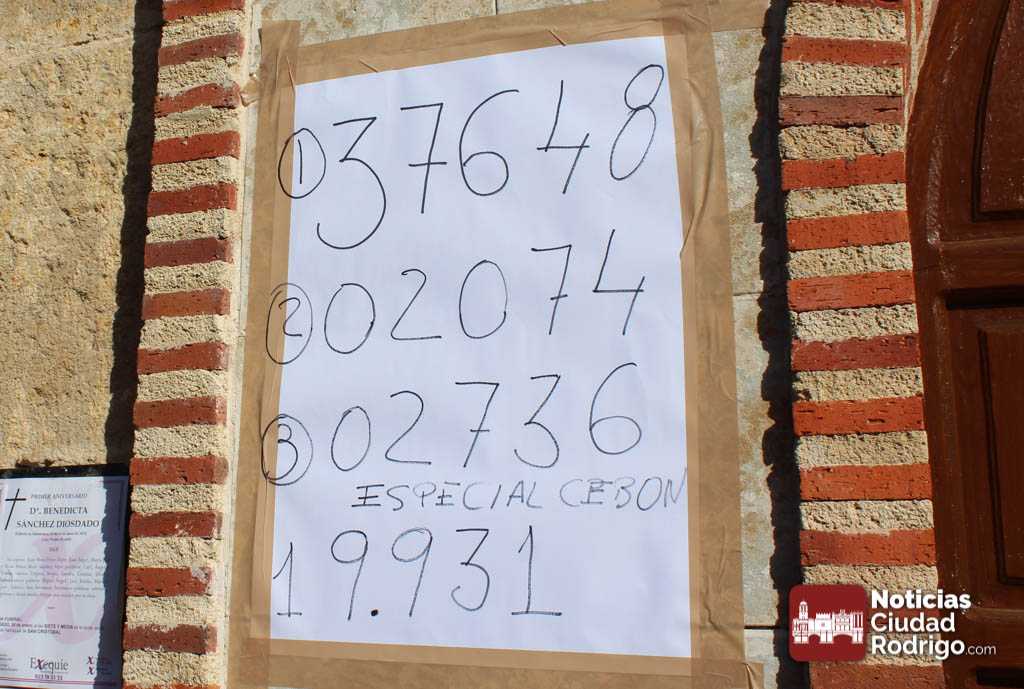 ① 37648
② 02074
③ 02736
ESPECIAL CEBON
19.931
PRIMER ANIVERSARIO
Dª. BENEDICTA
SÁNCHEZ DIOSDADO
SAN CRISTÓBAL
Exequie
Noticias
Ciudad
Rodrigo.com